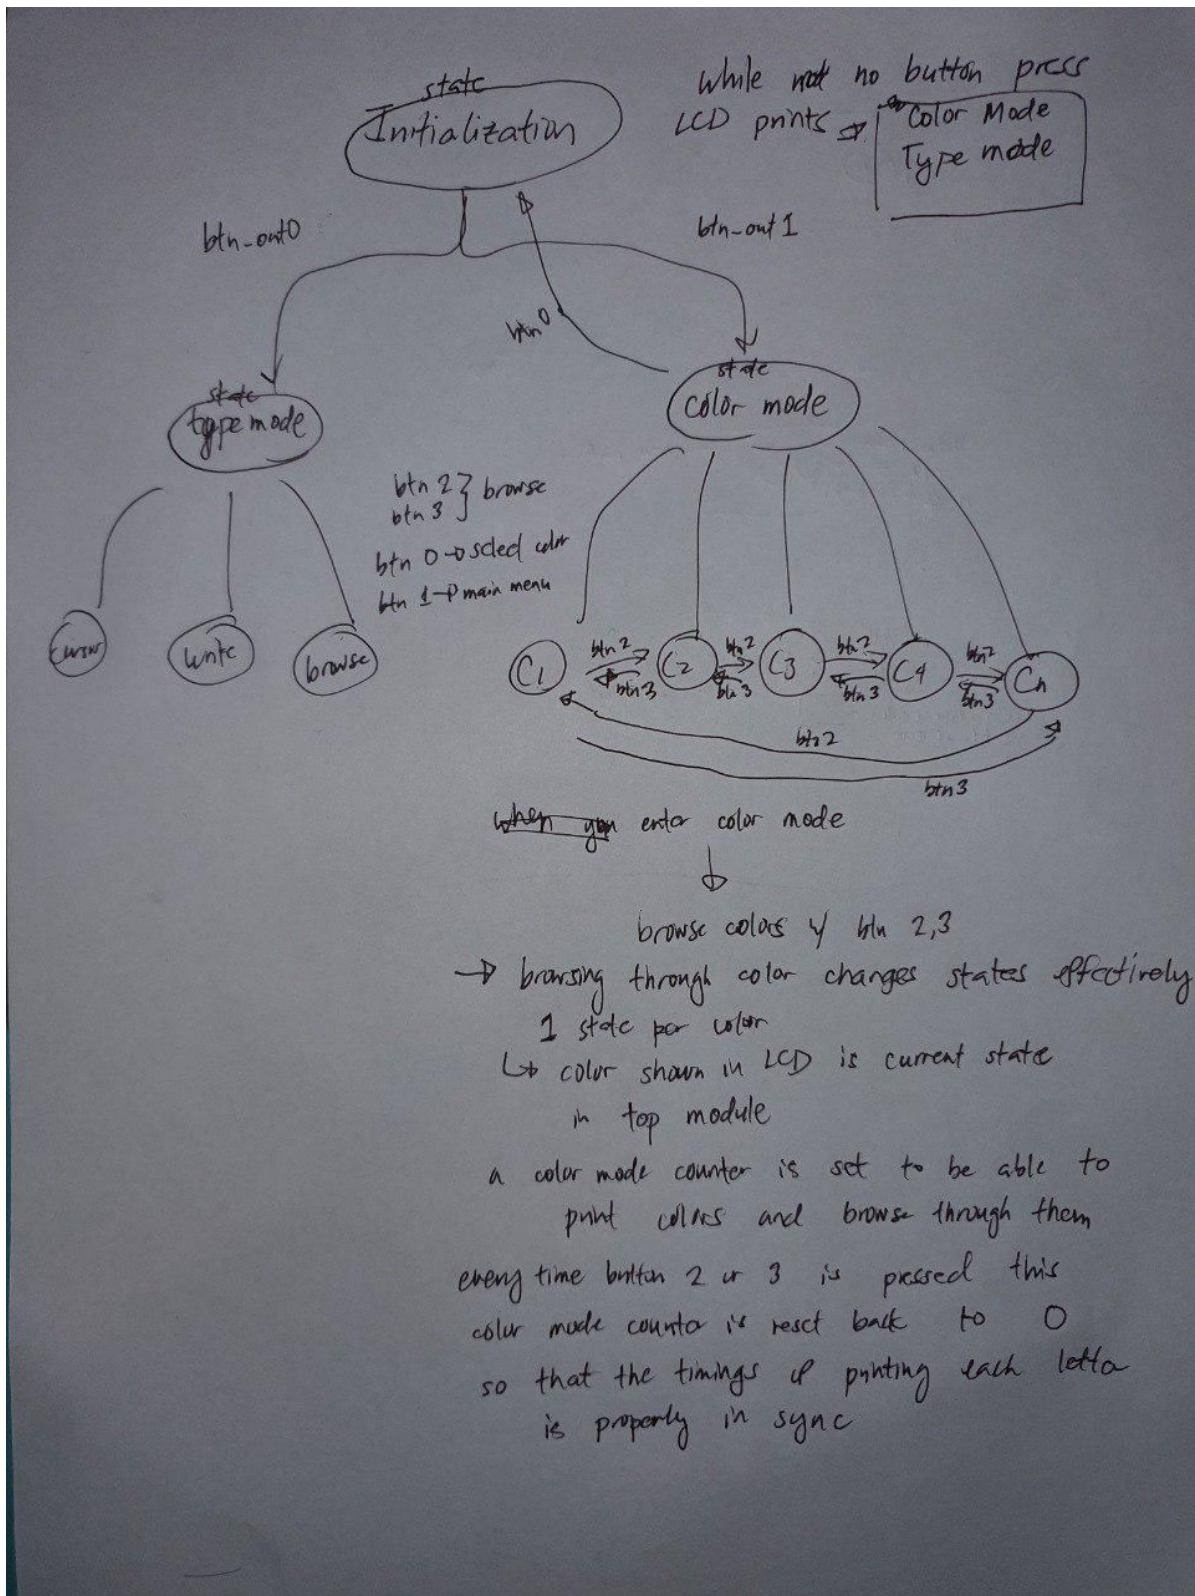 state
Initialization
while not no button press
LCD prints → Color Mode
Type mode
btn-out0
btn-out 1
btn 0
state
type mode
state
color mode
btn 2 } browse
btn 3
btn 0 → select color
btn 1 → main menu
cursor
write
browse
C1
btn2
btn3
C2
btn2
btn3
C3
btn2
btn3
C4
btn2
btn3
Cn
btn2
btn3
when you enter color mode
↓
browse colors w/ btn 2,3
→ browsing through color changes states effectively
1 state per color
↳ color shown in LCD is current state
in top module
a color mode counter is set to be able to
print colors and browse through them
every time button 2 or 3 is pressed this
color mode counter is reset back to 0
so that the timings of printing each letter
is properly in sync